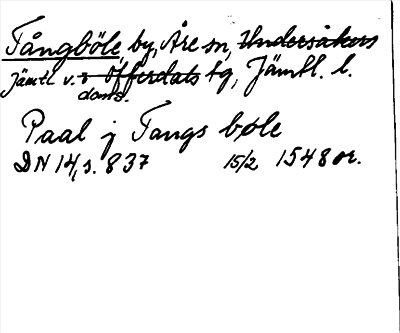 Tångböle, by, Åre sn, Undersåkers
Jämtl v. o Offerdals tg, Jämtl. l.
doms.
Paal j Tangs bøle
DN 14, s. 837 15/2 1548 or.